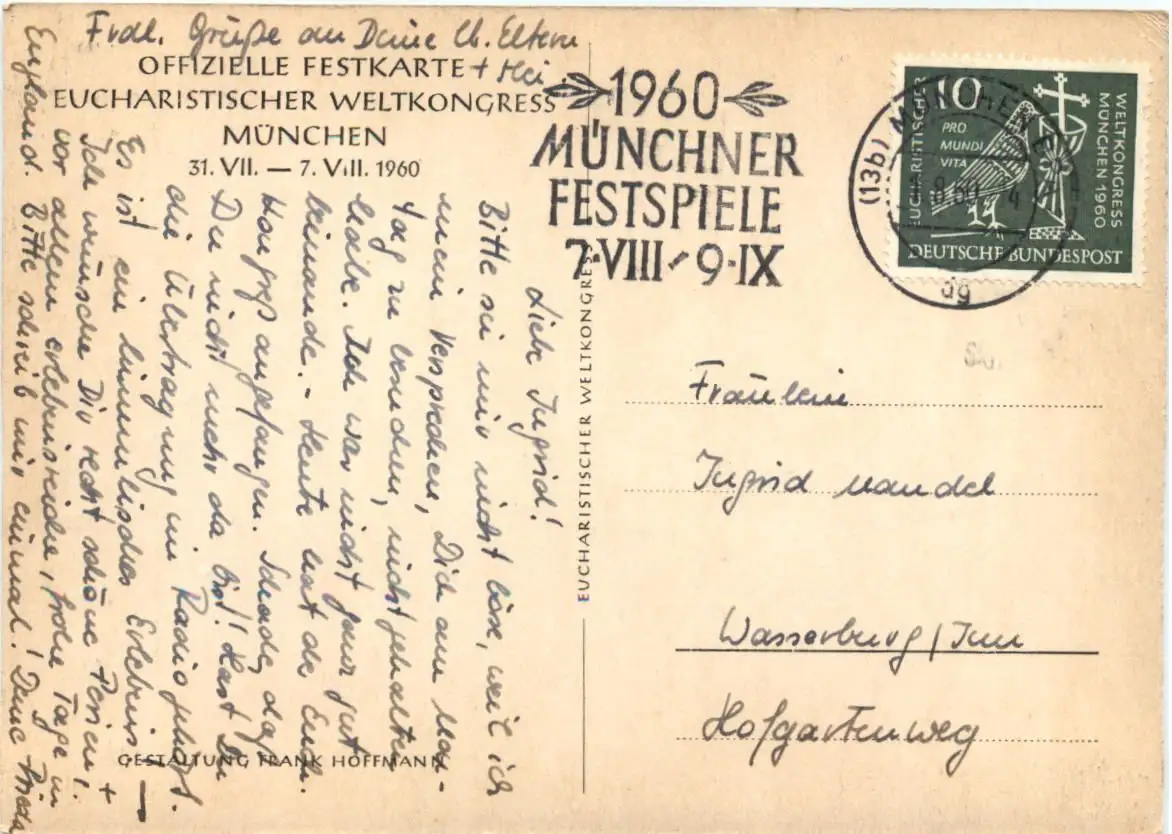 Frdl. Grüße an Deine lb. Eltern
+ Hei
OFFIZIELLE FESTKARTE
EUCHARISTISCHER WELTKONGRESS
MÜNCHEN
31. VII. — 7. VIII. 1960
Liebe Ingrid!
Bitte sei mir nicht böse, weil ich
mein Versprechen, Dich am Mon-
tag zu besuchen, nicht gehalten
habe. Ich war nicht ganz gut
beinand. - Heute hat der Euch.
Kongreß angefangen. Schade, daß
Du nicht mehr da bist! Hast Du
die Übertragung im Radio gehört.
Es ist ein himmlisches Erlebnis —
Ich wünsche Dir recht schöne Ferien, +
vor allem erlebnisreiche, frohe Tage in
England. Bitte schreib mir einmal! Deine
GESTALTUNG FRANK HOFFMANN
EUCHARISTISCHER WELTKONGRESS
1960
MÜNCHNER
FESTSPIELE
7·VIII-9·IX
(13b) MÜNCHEN
8.60
ag
10
PRO
MUNDI
VITA
EUCHARISTISCHER
WELTKONGRESS
MÜNCHEN 1960
DEUTSCHE BUNDESPOST
Fräulein
Ingrid Mandel
Wasserburg/Inn
Hofgartenweg